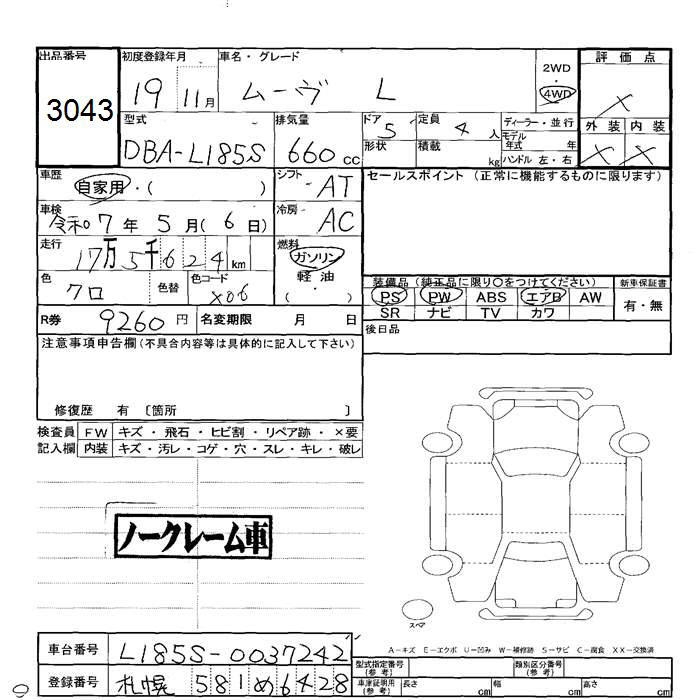 出品番号 初度登録年月 車名・グレード 評価点
3043 19 11月 ムーヴ L 2WD 4WD X
外装 内装
X X
型式 排気量 ドア 定員 ディーラー・並行
DBA-L185S 660cc 5 4人 モデル年式 年
形状 積載 kg ハンドル 左・右
車歴 自家用・( ) シフト AT セールスポイント (正常に機能するものに限ります)
車検 令和07年5月(6日) 冷房 AC
走行 17万5千624km 燃料 ガソリン
軽油
・( )
色 クロ 色替 色コード X06
装備品 (純正品に限り○をつけてください) 新車保証書
PS PW ABS エアB AW 有・無
SR ナビ TV カワ
R券 9260円 名変期限 月 日 後日品
注意事項申告欄(不具合内容等は具体的に記入して下さい)
修復歴 有 〔箇所 〕
検査員 FW キズ・飛石・ヒビ割・リペア跡・×要
記入欄 内装 キズ・汚レ・コゲ・穴・スレ・キレ・破レ
ノークレーム車
スペア
A-キズ E-エクボ U-凹み W-補修跡 S-サビ C-腐食 XX-交換済
車台番号 L185S-0037242 型式指定番号(参考) 類別区分番号(参考)
登録番号 札幌 581め6428 車庫証明用(参考) 長さ cm 幅 cm 高さ cm